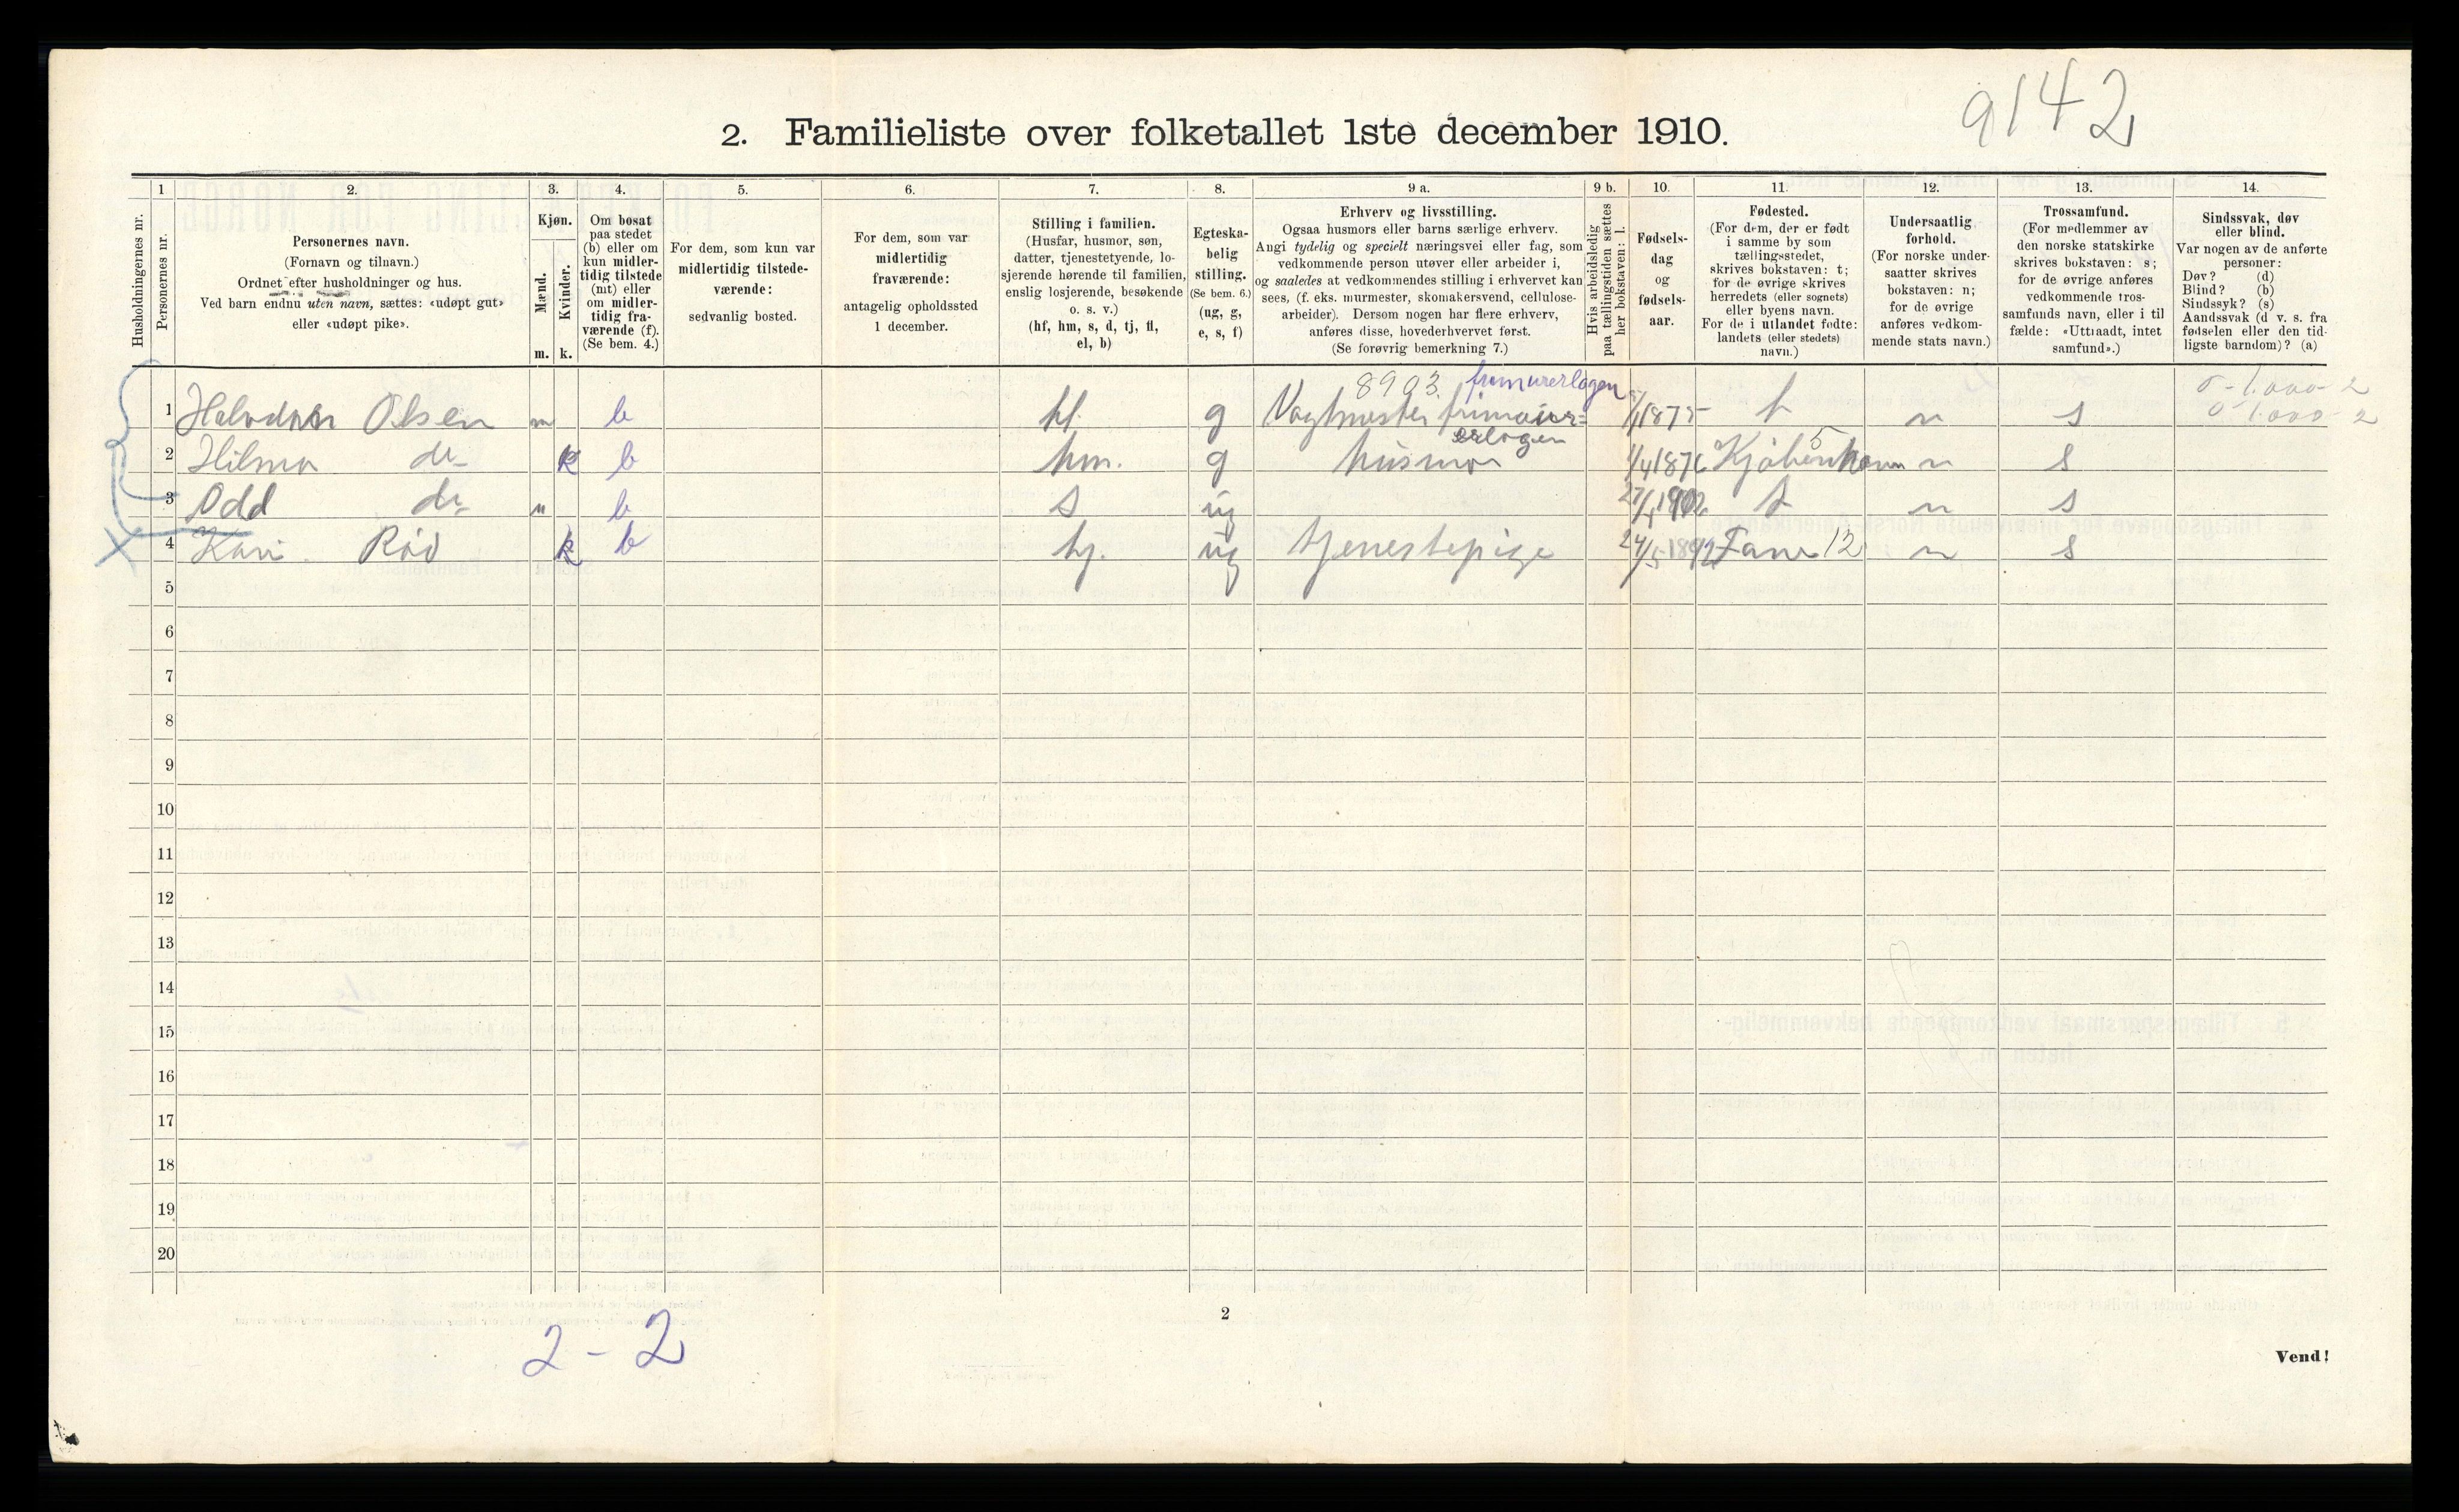 9142
2. Familieliste over folketallet 1ste december 1910.
1 2. 3. 4. 5. 6. 7. 8. 9 a. 9 b. 10. 11. 12. 13. 14.
Husholdningernes nr.
Personernes nr.
Personernes navn.
(Fornavn og tilnavn.)
Ordnet efter husholdninger og hus.
Ved barn endnu uten navn, sættes: «udøpt gut»
eller «udøpt pike».
Kjøn.
Mænd.
Kvinder.
m. k.
Om bosat
paa stedet
(b) eller om
kun midler-
tidig tilstede
(mt) eller
om midler-
tidig fra-
værende (f).
(Se bem. 4.)
For dem, som kun var
midlertidig tilstede-
værende:
sedvanlig bosted.
For dem, som var
midlertidig
fraværende:
antagelig opholdssted
1 december.
Stilling i familien.
(Husfar, husmor, søn,
datter, tjenestetyende, lo-
sjerende hørende til familien,
enslig losjerende, besøkende
o. s. v.)
(hf, hm, s, d, tj, fl,
el, b)
Egteska-
belig
stilling.
(Se bem. 6.)
(ug, g,
e, s, f)
Erhverv og livsstilling.
Ogsaa husmors eller barns særlige erhverv.
Angi tydelig og specielt næringsvei eller fag, som
vedkommende person utøver eller arbeider i,
og saaledes at vedkommendes stilling i erhvervet kan
sees, (f. eks. murmester, skomakersvend, cellulose-
arbeider). Dersom nogen har flere erhverv,
anføres disse, hovederhvervet først.
(Se forøvrig bemerkning 7.)
Hvis arbeidsledig
paa tællingstiden sættes
her bokstaven: l.
Fødsels-
dag
og
fødsels-
aar.
Fødested.
(For dem, der er født
i samme by som
tællingsstedet,
skrives bokstaven: t;
for de øvrige skrives
herredets (eller sognets)
eller byens navn.
For de i utlandet fødte:
landets (eller stedets)
navn.)
Undersaatlig
forhold.
(For norske under-
saatter skrives
bokstaven: n;
for de øvrige
anføres vedkom-
mende stats navn.)
Trossamfund.
(For medlemmer av
den norske statskirke
skrives bokstaven: s;
for de øvrige anføres
vedkommende tros-
samfunds navn, eller i til
fælde: «Uttraadt, intet
samfund».)
Sindssvak, døv
eller blind.
Var nogen av de anførte
personer:
Døv? (d)
Blind? (b)
Sindssyk? (s)
Aandssvak (d v. s. fra
fødselen eller den tid-
ligste barndom)? (a)
8903. frimurerlogen 0-1.000-2
1 Halvdan Olsen m b hf. g Vagtmester frimurer- 1875 t n s 0-1.000-2
erlogen
2 Hilma do k b hm. g husmor 1/4 1876 Kjøbenhavn n s
5
3 Odd do m b s ug 27/1 1902 t n s
4 Kari Rød k b tj. ug tjenestepige 24/5 1892 Fane 12 n s
5
6
7
8
9
10
11
12
13
14
15
16
17
18
19
20
2
2 - 2
Vend!